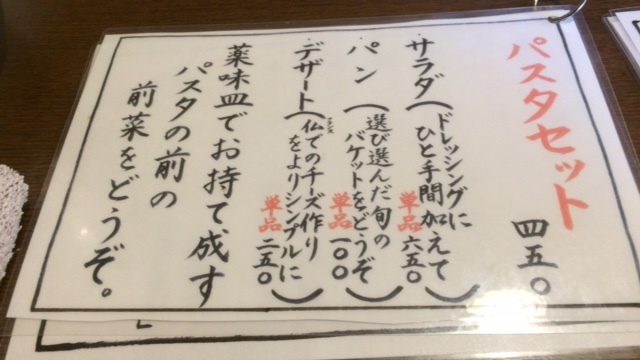 パスタセット 四五〇
・サラダ(ドレッシングに
ひと手間加えて)
単品 六五〇
・パン(選び選んだ旬の
バケットをどうぞ)
単品 一〇〇
・デザート(仏でのチーズ作り
をよりシンプルに)
単品 二五〇
薬味皿でお持て成す
パスタの前の
前菜をどうぞ。